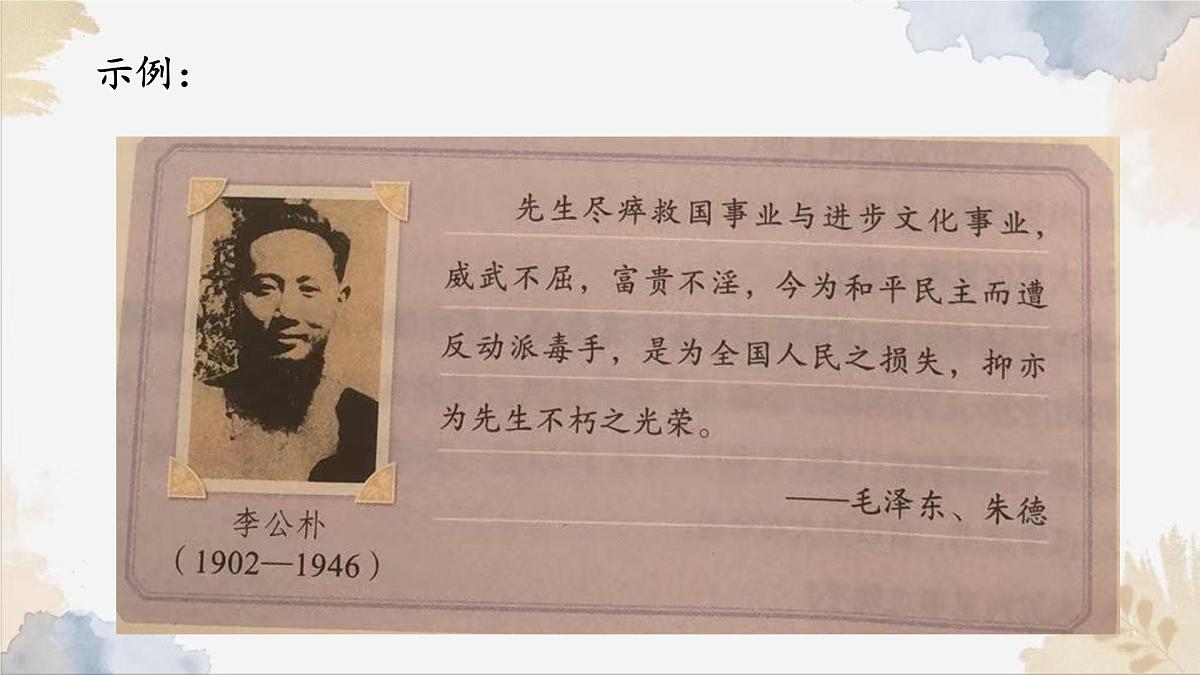 示例：
先生尽瘁救国事业与进步文化事业，
威武不屈，富贵不淫，今为和平民主而遭
反动派毒手，是为全国人民之损失，抑亦
为先生不朽之光荣。
——毛泽东、朱德
李公朴
（1902—1946）